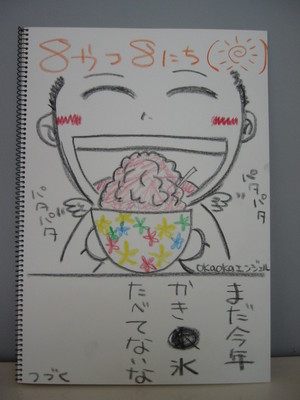 8やつ8にち(☀)
パタパタ
パタパタ
OKaOKaエンジェル
まだ今年
かき氷
たべてないな
つづく